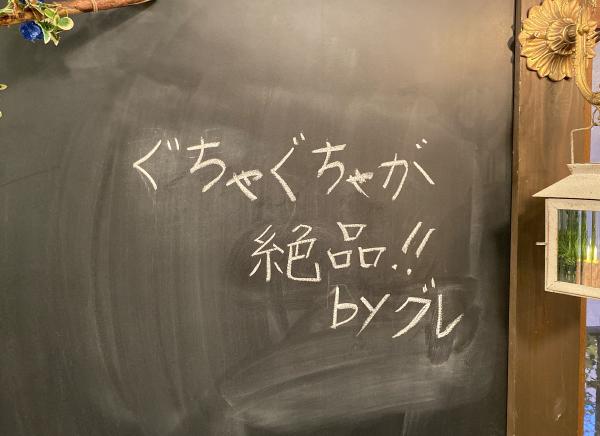 ぐちゃぐちゃが
絶品!!
byグレ